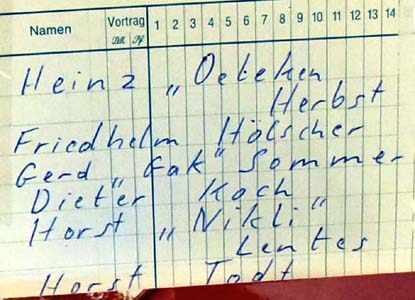 Namen Vortrag 1 2 3 4 5 6 7 8 9 10 11 12 13 14
DM Pf
Heinz „Oebeken
Herbst
Friedhelm Hölscher
Gerd „Gak“ Sommer
Dieter Koch
Horst „Nikli“
Lentes
Horst Todt